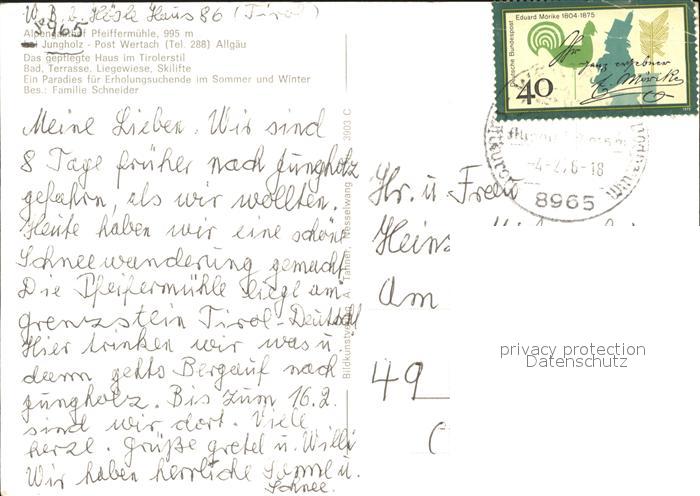 W. B. b. Hösle Haus 86 (Tirol)
8965
Alpengasthof Pfeiffermühle, 995 m
bei Jungholz - Post Wertach (Tel. 288) Allgäu
Das gepflegte Haus im Tirolerstil
Bad, Terrasse, Liegewiese, Skilifte
Ein Paradies für Erholungsuchende im Sommer und Winter
Bes.: Familie Schneider
Meine Lieben. Wir sind
8 Tage früher nach Jungholz
gefahren, als wir wollten.
Heute haben wir eine schöne
Schneewanderung gemacht.
Die Pfeifermühle liegt am
Grenzstein Tirol-Deutschl
Hier trinken wir was u.
dann gehts Bergauf nach
Jungholz. Bis zum 16.2.
sind wir dort. Viele
herzl. Grüße Gretel u. Willi
Wir haben herrliche Sonne u.
Schnee.
Bildkunstverlag A. Tahner, Nesselwang 3903 C
Deutsche Bundespost
Eduard Mörike 1804-1875
Ihr
ganz ergebner
E. Mörike
40
-4-2.76-18
8965
Hr. u. Frau
Heinz
Am
49
privacy protection
Datenschutz